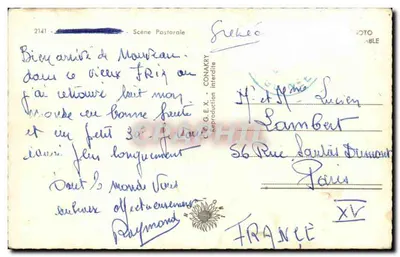 2141 - Scène Pastorale
Bien arrivé de Nouveau
dans ce vieux
j'ai retrouvé tout mon
monde en bonne Santé
et un petit
plus longuement
Tout le monde vous
embrasse affectueusement
Raymond
C.O.G.E.X. - CONAKRY
Reproduction interdite
Mr et Mme Lucien
Lambert
56 Rue Santos Dumont
Paris
XV
FRANCE